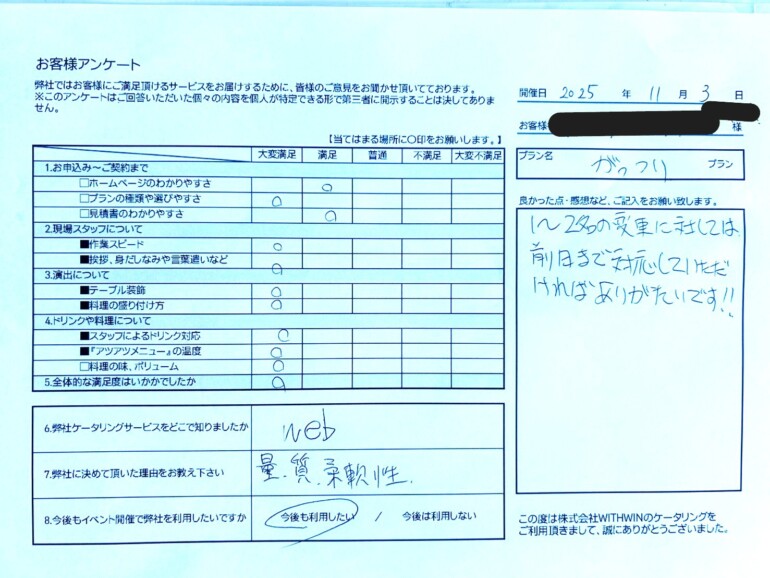 お客様アンケート
弊社ではお客様にご満足頂けるサービスをお届けするために、皆様のご意見をお聞かせ頂いております。
※このアンケートはご回答いただいた個々の内容を個人が特定できる形で第三者に開示することは決してありません。
開催日 2025 年 11 月 3 日
お客様 様
【当てはまる場所に〇印をお願いします。】
プラン名 がっつり プラン
大変満足 満足 普通 不満足 大変不満足
1.お申込み~ご契約まで
□ホームページのわかりやすさ ○
□プランの種類や選びやすさ ○
□見積書のわかりやすさ ○
2.現場スタッフについて
■作業スピード ○
■挨拶、身だしなみや言葉遣いなど ○
3.演出について
■テーブル装飾 ○
■料理の盛り付け方 ○
4.ドリンクや料理について
■スタッフによるドリンク対応 ○
■『アツアツメニュー』の温度 ○
□料理の味、ボリューム ○
5.全体的な満足度はいかがでしたか ○
良かった点・感想など、ご記入をお願い致します。
1〜2名の変更に対しては
前日まで対応していただ
ければありがたいです!!
6.弊社ケータリングサービスをどこで知りましたか web
7.弊社に決めて頂いた理由をお教え下さい 量.質.柔軟性.
8.今後もイベント開催で弊社を利用したいですか 今後も利用したい / 今後は利用しない
この度は株式会社WITHWINのケータリングを
ご利用頂きまして、誠にありがとうございました。